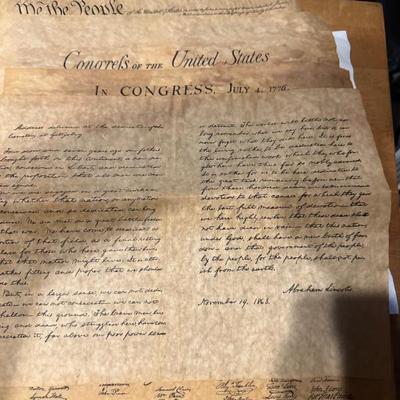 We the People
Congress OF THE United States
IN CONGRESS, JULY 4, 1776.
Address delivered at the dedication of the
Cemetery at Gettysburg.
Four score and seven years ago our fathers
brought forth on this continent, a new na-
tion, conceived in Liberty, and dedicated
to the proposition that all men are cre-
ated equal.
Now we are engaged in a great civil war,
testing whether that nation, or any nation
so conceived and so dedicated, can long
endure. We are met on a great battle-field
of that war. We have come to dedicate a
portion of that field, as a final resting
place for those who here gave their lives
that that nation might live. It is alto-
gether fitting and proper that we should
do this.
But, in a larger sense, we can not dedi-
cate— we can not consecrate— we can not
hallow— this ground. The brave men, liv-
ing and dead, who struggled here have con-
secrated it, far above our poor power to add
or detract. The world will little note, nor
long remember what we say here, but it can
never forget what they did here. It is for us
the living, rather, to be dedicated here to
the unfinished work which they who fou-
ght here have thus far so nobly advanced.
It is rather for us to be here dedicated to
the great task remaining before us— that
from these honored dead we take increased
devotion to that cause for which they gave
the last full measure of devotion— that
we here highly resolve that these dead shall
not have died in vain— that this nation,
under God, shall have a new birth of free-
dom— and that government of the people,
by the people, for the people, shall not per-
ish from the earth.
Abraham Lincoln.
November 19, 1863.